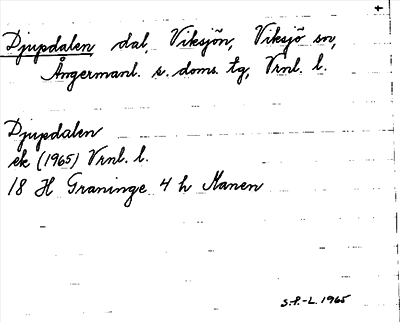 +
Djupdalen dal, Viksjön, Viksjö sn,
Ångermanl. s. doms. tg, Vrnl. l.
Djupdalen
ek (1965) Vrnl. l.
18 H Graninge 4 h Manen
S.P.-L. 1965